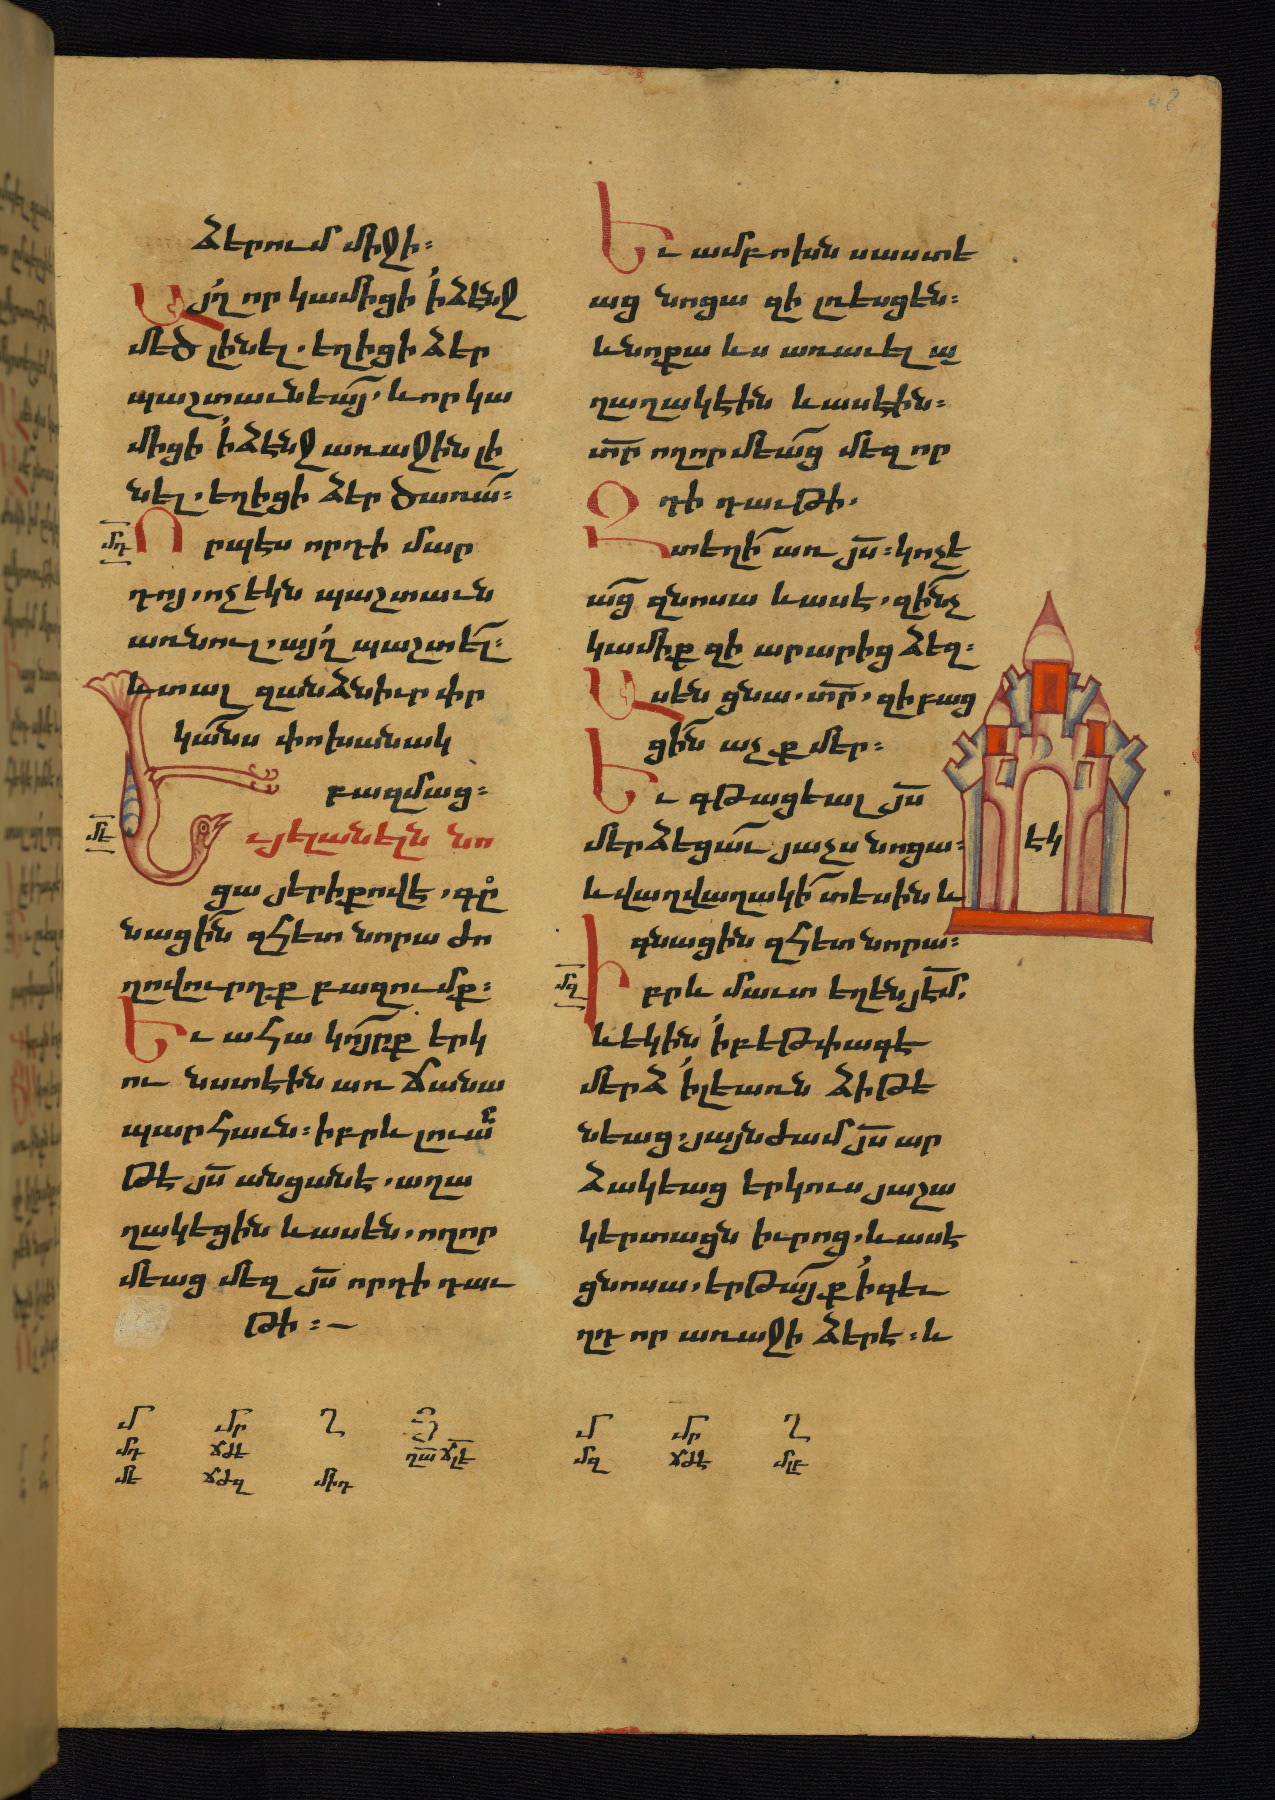 ձերում միջի։
Այղ որ կամիցի ՛ի ձէնջ
մեծ լինել. եղիցի ձեր
պաշտաւնեայ. և որ կա
միցի ՛ի ձէնջ առաջին լի
նել. եղիցի ձեր ծառա։
մդ
Որպէս որդի մար
դոյ. ոչ եկն պաշտաւն
առնուլ. այղ պաշտել։
և տալ զանձնիւր փր
կանս փոխանակ
բազմաց։
մե
Եւ յելանելն նո
ցա յերիքովէ. գը
նացին զհետ նորա ժո
ղովուրդք բազումք։
Եւ ահա կոյրք երկ
ու նստէին առ ճանա
պարհաւն։ իբրև լուան
թէ յս անցանէ. աղա
ղակեցին և ասեն. ողոր
մեաց մեզ յս որդի դաւ
թի։
Եւ ամբոխն սաստե
աց նոցա զի լռեսցեն։
և նոքա ևս առաւել ա
ղաղակէին և ասէին։
տր ողորմեաց մեզ որ
դի դաւթի.
Զտեղի առ յս։ կոչե
աց զնոսա և ասէ. զինչ
կամիք զի արարից ձեզ։
Ասեն ցնա. տր. զի բաց
ցին աչք մեր։
Եւ գթացեալ յս
մերձեցաւ յաչս նոցա։
և վաղվաղակի տեսին և
գնացին զհետ նորա։
մզ
Իբրև մաւտ եղեն յեմ.
և եկին ՛ի բեթփագէ
մերձ ՛ի լեառն ձիթե
նեաց. յայնժամ յս ար
ձակեաց երկուս յաշա
կերտացն իւրոց. և ասէ
ցնոսա. երթայք ՛ի գեւ
ղդ որ առաջի ձերէ։ և
էկ
մ մր ղ
մդ ճժէ ղա ճլէ
մե ճժզ միդ
մ մր ղ
մզ ճժէ մլբ